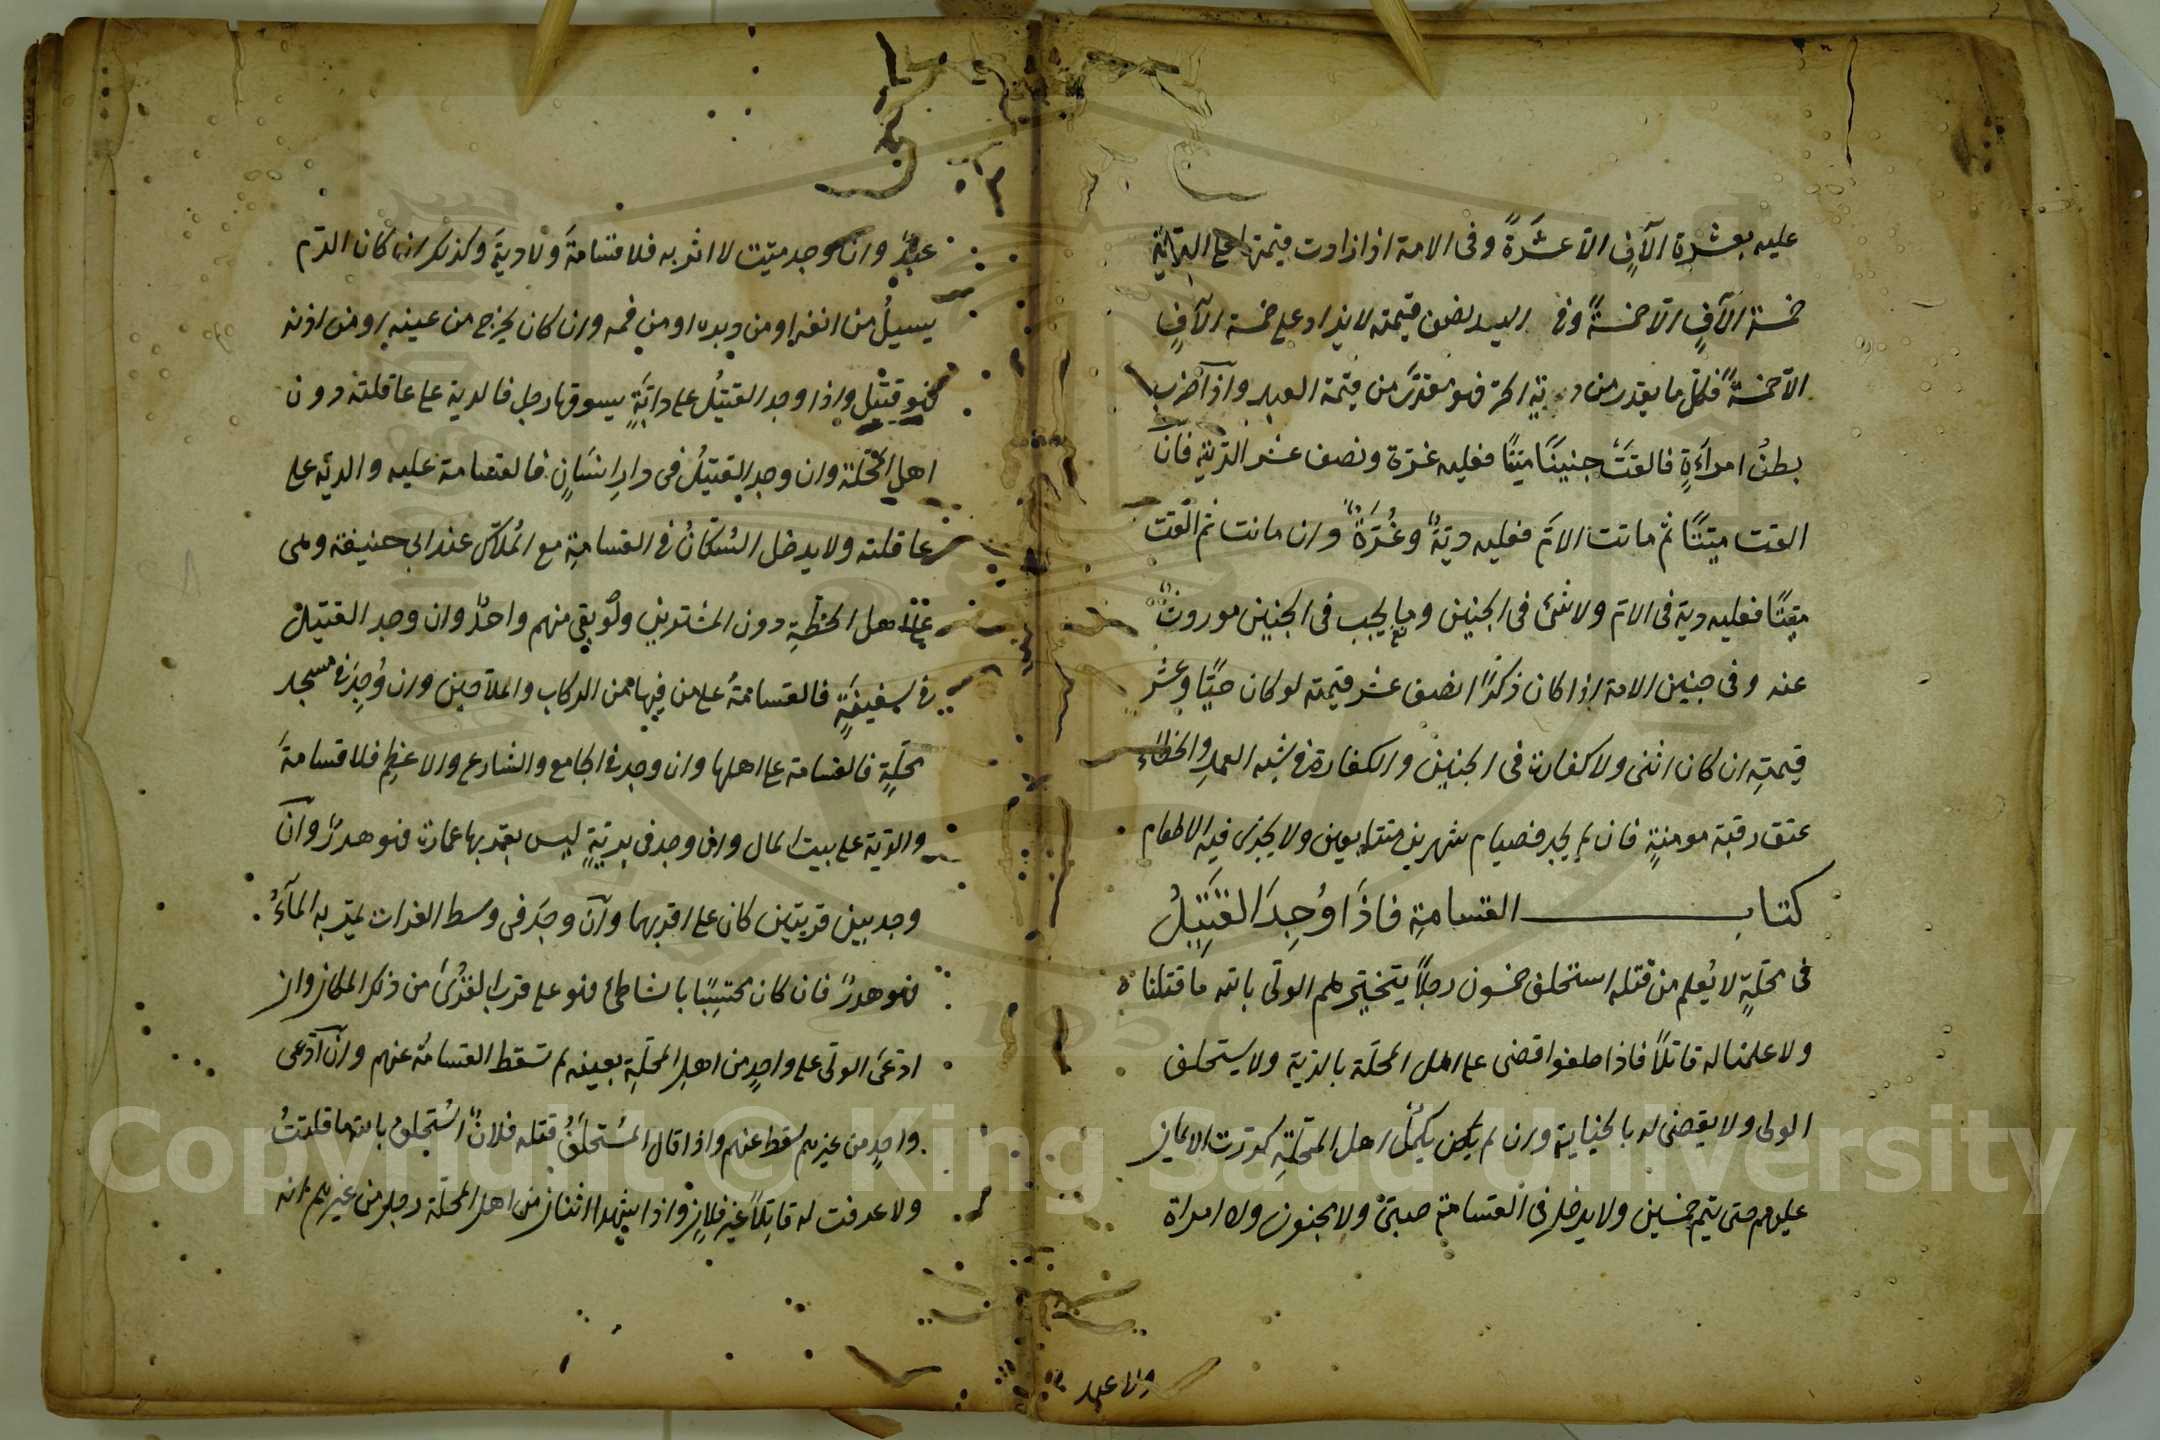 عليه بعشرة الآفٍ الا عشرَةً وفى الامة اذا زادت قيمتها على الدية
خمسة الآفٍ الا خمسةً وفى اليد نصف قيمته لا يزاد على خمسة الآفٍ
الا خمسةً فكل ما يقدر من دية الحر فهو مقدر من قيمة العبد واذا ضرب
بطنُ امراةٍ فالقتْ جنينًا ميتًا فعليه غرة ونصف عشر الدية فان
القت ميتًا ثم ماتت الام فعليه ديةٌ وغُرَةٌ وان ماتت ثم القت
ميتًا فعليه دية فى الام ولا شئ فى الجنين وما يجب فى الجنين موروثٌ
عنه وفى جنين الامة اذا كان ذكرًا نصف عشر قيمته لو كان حيًا وعشر
قيمتِه ان كان انثى ولا كفارة فى الجنين والكفارة فى شبه العمدِ والخطاء
عتق رقبة مومنةٍ فان لم يجد فصيام شهرين متتابعين ولا يجزى فيه الاطعام
كتاب القسامةِ فاذَا وُجِدَ القَتِيلُ
فى محلةٍ لا يُعلم من قتله استحلف خمسون رجلًا يتخيرهم الولى بالله ما قتلناه
ولا علمنا له قاتلًا فاذا حلفوا قضى على اهل المحلة بالدية ولا يستحلف
الولى ولا يقضى له بالجناية وان لم يكن يكمل اهل المحلةِ كررت الايمان
عليهم حتى يتم خمسين ولا يدخل فى القسامة صبىٌ ولا مجنون ولا امراة
ولا عبد
عبدٌ وان وجد ميت لا اثر به فلا قسامةَ ولا ديةَ وكذلك ان كان الدم
يسيلُ من انفه او من دبره او من فمه وان كان يخرج من عينيه او من اذنه
فهو قتيل واذا وجد القتيلُ على دابةٍ يسوقها رجل فالدية على عاقلته دون
اهل المحلة وان وجد القتيلُ فى دارِ انسَانٍ فالقسامة عليه والدية على
عاقلته ولا يدخل السُكانُ فى القسامةِ مع المُلاك عند ابى حنيفة وهى
على اهل الخطةِ دون المشترين ولو بقى منهم واحدٌ وان وجد القتيل
فى سفينةٍ فالقسامةُ على من فيها من الركاب والملاحين وان وُجِدَ فى مسجد
محلةٍ فالقسامة على اهلها وان وجد فى الجامع والشارع والاعظم فلا قسامةَ
والدية على بيت المال وان وجد فى بريةٍ ليس بقربها عمارة فهو هدرٌ وان
وجد بين قريتين كان على اقربهما وان وجدَ فى وسط الفرات يمر به المآءُ
فهو هدرٌ فان كان محتبسًا بالشاطئ فهو على قرب القرىَ من ذلك المكان وان
ادعىَ الولى على واحدٍ من اهل المحلةِ بعينه لم تسقط القسامة عنهم وان ادعى
واحدٍ من غيرهم سقط عنهم واذا قال المُستحلَفُ قتله فلانٌ اسُتحلف بالله ما قتلتُ
ولا عرفت له قاتِلًا غير فلانٍ واذا شهد اثنان من اهل المحلة رجل من غيرهم انه
Copyright © King Saud University
1957